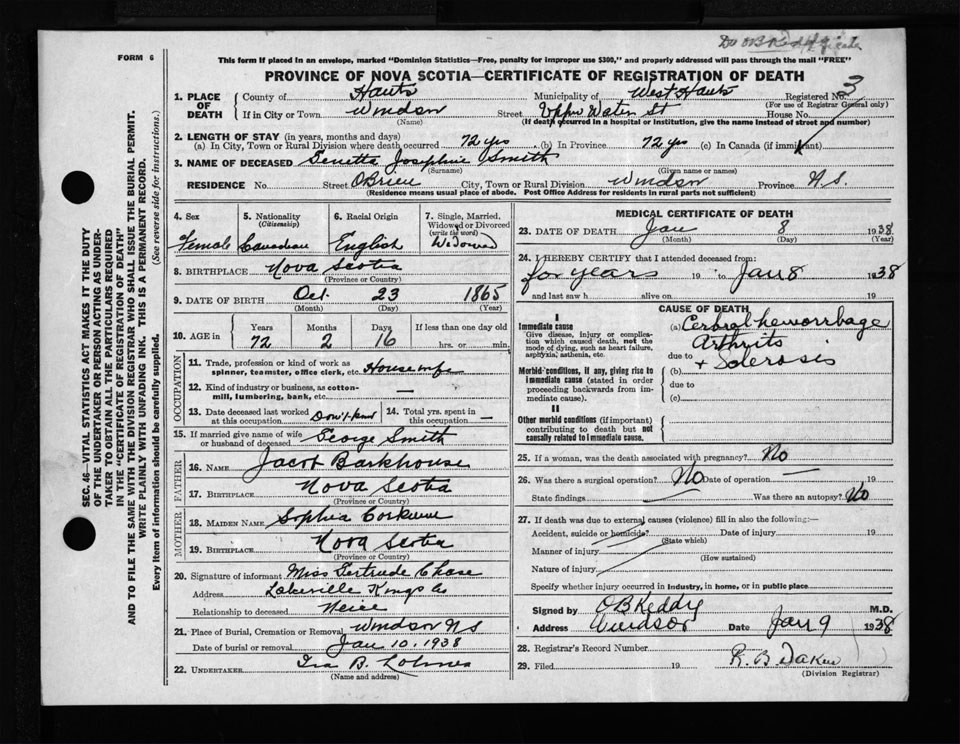 Dr OB Keddy
FORM 6
This form if placed in an envelope, marked "Dominion Statistics—Free, penalty for improper use $300," and properly addressed will pass through the mail "FREE"
PROVINCE OF NOVA SCOTIA—CERTIFICATE OF REGISTRATION OF DEATH
SEC. 46—VITAL STATISTICS ACT MAKES IT THE DUTY
OF THE UNDERTAKER OR PERSON ACTING AS UNDER-
TAKER TO OBTAIN ALL THE PARTICULARS REQUIRED
IN THE "CERTIFICATE OF REGISTRATION OF DEATH"
AND TO FILE THE SAME WITH THE DIVISION REGISTRAR WHO SHALL ISSUE THE BURIAL PERMIT.
WRITE PLAINLY WITH UNFADING INK. THIS IS A PERMANENT RECORD.
Every item of information should be carefully supplied. (See reverse side for instructions.)
1. PLACE OF DEATH County of Hants Municipality of West Hants Registered No. 3
(For use of Registrar General only)
If in City or Town Windsor Street Upper Water St House No.
(Name) (If death occurred in a hospital or institution, give the name instead of street and number)
2. LENGTH OF STAY (in years, months and days)
(a) In City, Town or Rural Division where death occurred 72 yrs (b) In Province 72 yrs (c) In Canada (if immigrant)
3. NAME OF DECEASED Genetta Josephine Smith
(Surname) (Given name or names)
RESIDENCE No. Street OBrien City, Town or Rural Division Windsor Province N.S.
(Residence means usual place of abode. Post Office Address for residents in rural parts not sufficient)
4. Sex 5. Nationality (Citizenship) 6. Racial Origin 7. Single, Married, Widowed or Divorced (write the word)
Female Canadian English Widowed
8. BIRTHPLACE Nova Scotia
(Province or Country)
9. DATE OF BIRTH Oct. 23 1865
(Month) (Day) (Year)
10. AGE in Years Months Days If less than one day old
72 2 16 hrs. or min.
OCCUPATION
11. Trade, profession or kind of work as
spinner, teamster, office clerk, etc. Housewife
12. Kind of industry or business, as cotton-
mill, lumbering, bank, etc. —
13. Date deceased last worked at this occupation Don't know 14. Total yrs. spent in this occupation —
15. If married give name of wife
or husband of deceased George Smith
FATHER
16. Name Jacob Barkhouse
17. Birthplace Nova Scotia
(Province or Country)
MOTHER
18. Maiden Name Sophia
19. Birthplace Nova Scotia
(Province or Country)
20. Signature of informant Miss Gertrude Chase
Address Lakeville Kings Co
Relationship to deceased Neice
21. Place of Burial, Cremation or Removal Windsor NS
Date of burial or removal Jan 10. 1938
22. UNDERTAKER Ira B.
(Name and address)
MEDICAL CERTIFICATE OF DEATH
23. DATE OF DEATH Jan 8 1938
(Month) (Day) (Year)
24. I HEREBY CERTIFY that I attended deceased from:
for years 19 to Jan 8 1938
and last saw h alive on 19
CAUSE OF DEATH
I
Immediate cause
Give disease, injury or complica-
tion which caused death, not the
mode of dying, such as heart failure,
asphyxia, asthenia, etc.
(a) Cerbral hemorrhage
Arthrits
due to + Sclerosis
Morbid conditions, if any, giving rise to
immediate cause (stated in order
proceeding backwards from im-
mediate cause).
(b)
due to
(c)
II
Other morbid conditions (if important)
contributing to death but not
causally related to immediate cause.
25. If a woman, was the death associated with pregnancy? No
26. Was there a surgical operation? No Date of operation 19
State findings Was there an autopsy? No
27. If death was due to external causes (violence) fill in also the following:—
Accident, suicide or homicide? Date of injury 19
(State which)
Manner of injury
(How sustained)
Nature of injury
Specify whether injury occurred in industry, in home, or in public place
Signed by OB Keddy M.D.
Address Windsor Date Jan 9 1938
28. Registrar's Record Number
29. Filed 19 R. B. Dakin
(Division Registrar)